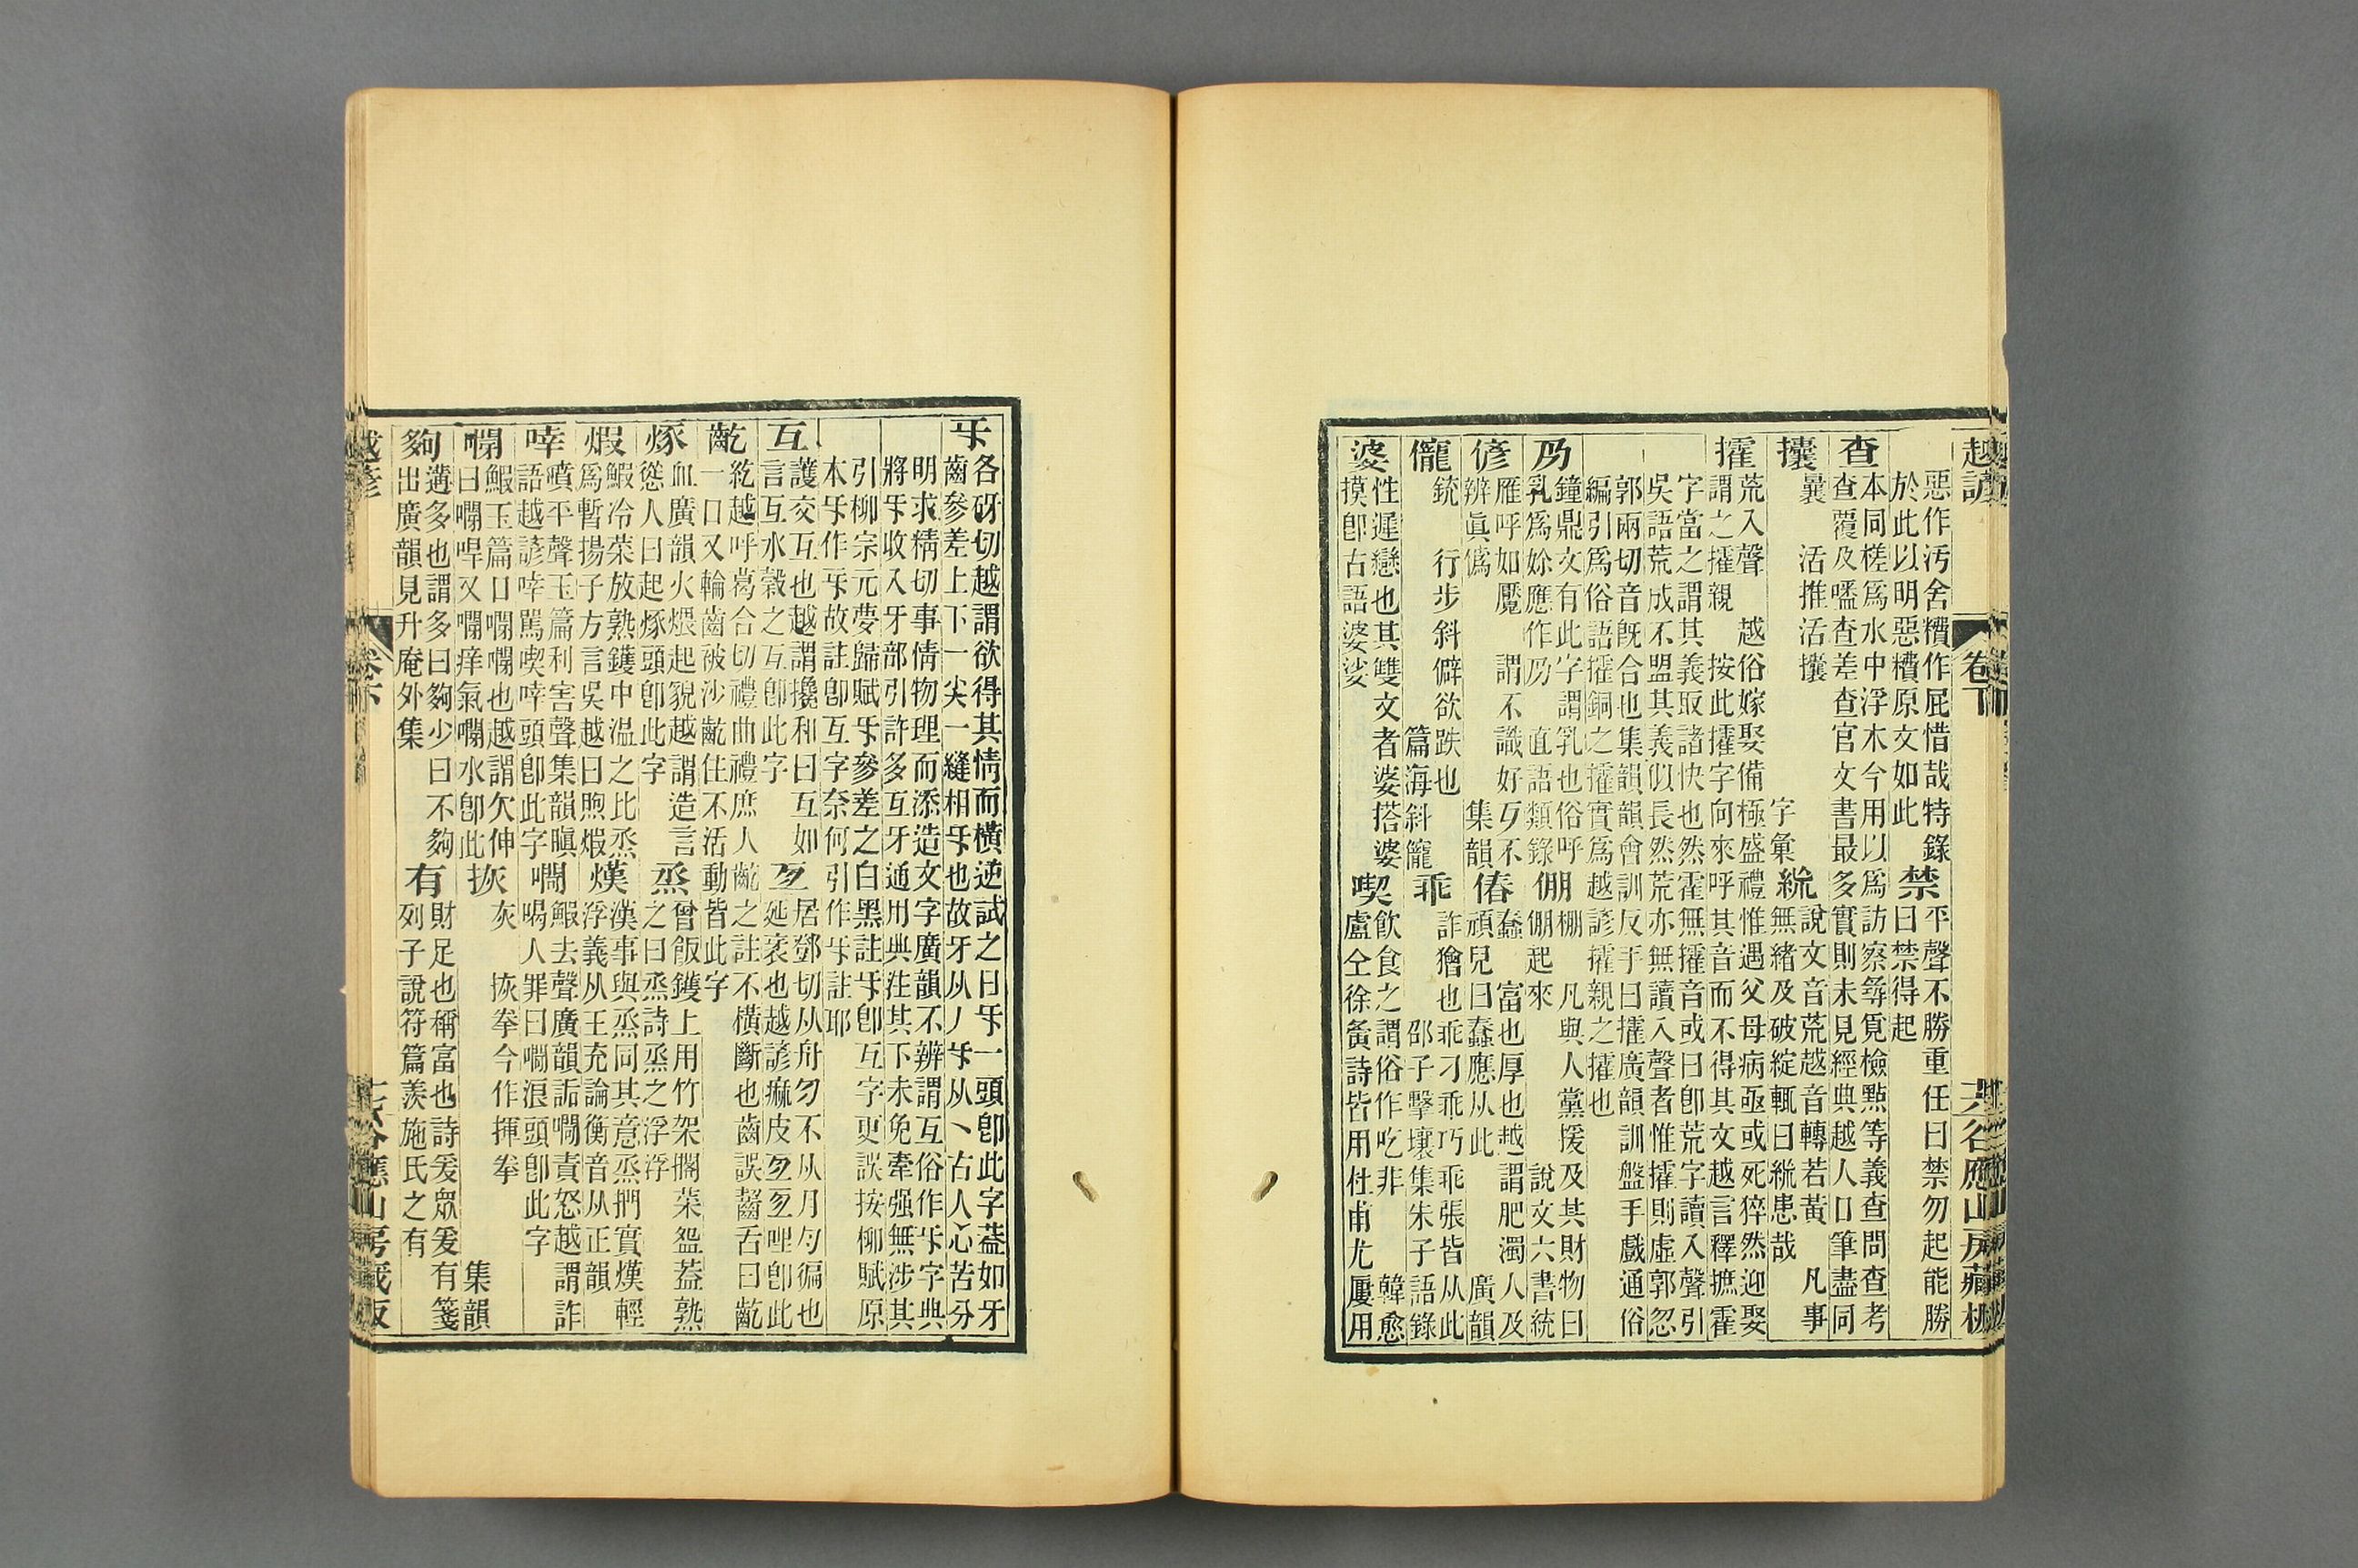 越諺 卷下 十六 谷應山房藏板
惡作汚舍𥽦作屁惜哉特錄
於此以明惡𥽦原文如此
禁
平聲不勝重任曰禁勿起能勝
曰禁得起
查
本同槎爲水中浮木今用以爲訪察尋覓檢點等義查問查考
查覆及嗑查差查官文書最多實則未見經典越人口筆盡同
攮
曩 活推活攮
字彙
絖
說文音荒越音轉若黃 凡事
無緒及破綻輒曰絖患哉
攉
荒入聲 越俗嫁娶備極盛禮惟遇父母病亟或死猝然迎娶
謂之攉親 按此攉字向來呼其音而不得其文越言釋摭霍
字當之謂其義取諸快也然霍無攉音或曰卽荒字讀入聲引
吳語荒成不盟其義似長然荒亦無讀入聲者惟攉則虛郭忽
郭兩切音旣合也集韻韻會訓反手曰攉廣韻訓盤手戲通俗
編引爲俗語攉銅之攉實爲越諺攉親之攉也
鐘鼎文有此字謂乳也俗呼
乳爲妳應作 直語類錄
倗
棚 凡與人黨援及其財物曰
倗起來 說文六書統
偐
雁呼如魘 謂不識好歹不
辨眞僞 集韻
偆
蠢 富也厚也越謂肥濁人及
頑皃曰蠢應从此 廣韻
儱
銃 行步斜僻欲跌也
篇海斜儱
乖
詐獪也乖刁乖巧乖張皆从此
邵子擊壤集朱子語錄
婆
性遲戀也其雙文者婆搭婆
摸卽古語婆娑
喫
飲食之謂俗作吃非 韓愈
盧仝徐夤詩皆用杜甫尤屢用
㸦
各砑切越謂欲得其情而橫逆試之曰㸦一頭卽此字葢如牙
齒參差上下一尖一縫相㸦也故牙从丿㸦从丶古人心苦分
明求精切事情物理而添造文字廣韻不辨謂互俗作㸦字典
將㸦收入牙部引許多互牙通用典注其下未免牽强無涉其
引柳宗元夢歸賦㸦參差之白黑註㸦卽互字更誤按柳賦原
本㸦作㸦故註卽互字奈何引作㸦註耶
互
護交互也越謂攙和曰互如
言互水穀之互卽此字
亙
居鄧切从舟勿不从月勻徧也
延袤也越諺痲皮亙亙哩卽此
齕
紇越呼葛合切禮曲禮庶人齕之註不橫斷也齒誤齧舌曰齕
一口又輪齒被沙齕住不活動皆此字
㷇
血廣韻火煨起貌越謂造言
慫人曰起㷇頭卽此字
烝
曾飯鑊上用竹架擱菜盌葢熟
之曰烝詩烝之浮浮
煆
鰕冷菜放熟鑊中温之比烝
爲暫揚子方言吳越曰煦煆
熯
漢事與烝同其意烝捫實熯輕
浮義从王充論衡音从正韻
啈
噴平聲玉篇利害聲集韻瞋
語越諺啈罵喫啈頭卽此字
嚪
鰕去聲廣韻詬嚪責怒越謂詐
喝人罪曰嚪浪頭卽此字
嚪
鰕玉篇口嚪嚪也越謂欠伸
曰嚪哻又嚪痒氣嚪水卽此
拻
灰 拻拳今作揮拳
集韻
夠
遘多也謂多曰夠少曰不夠
出廣韻見升庵外集
有
財足也稱富也詩爰眾爰有箋
列子說符篇羨施氏之有
越諺 卷下 十六 谷應山房藏板